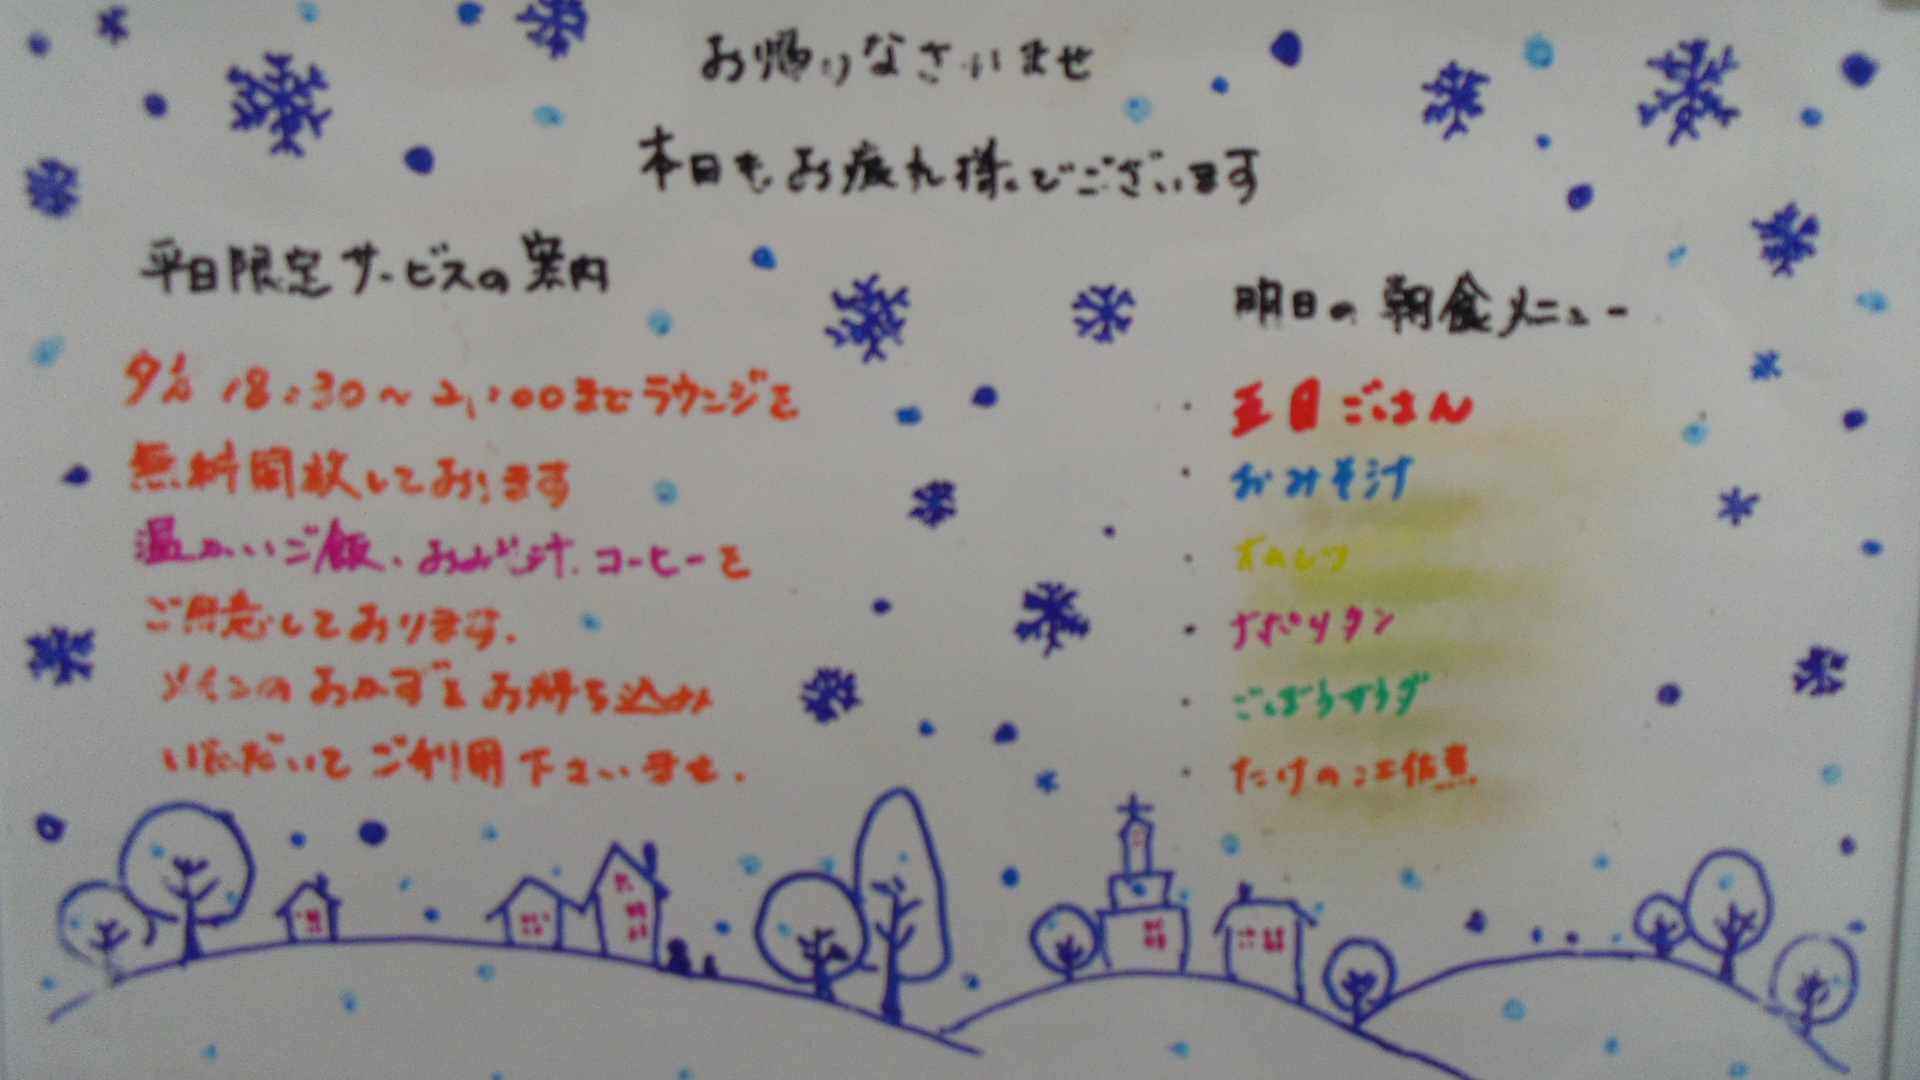 お帰りなさいませ
本日もお疲れ様でございます
平日限定サービスの案内
夕方 18:30～21:00までラウンジを
無料開放しております
温かいご飯、おみそ汁、コーヒーを
ご用意しております.
メインのおかずをお持ち込み
いただいてご利用下さいませ.
明日の朝食メニュー
・五目ごはん
・おみそ汁
・オムレツ
・ナポリタン
・ごぼうサラダ
・たけのこ土佐煮